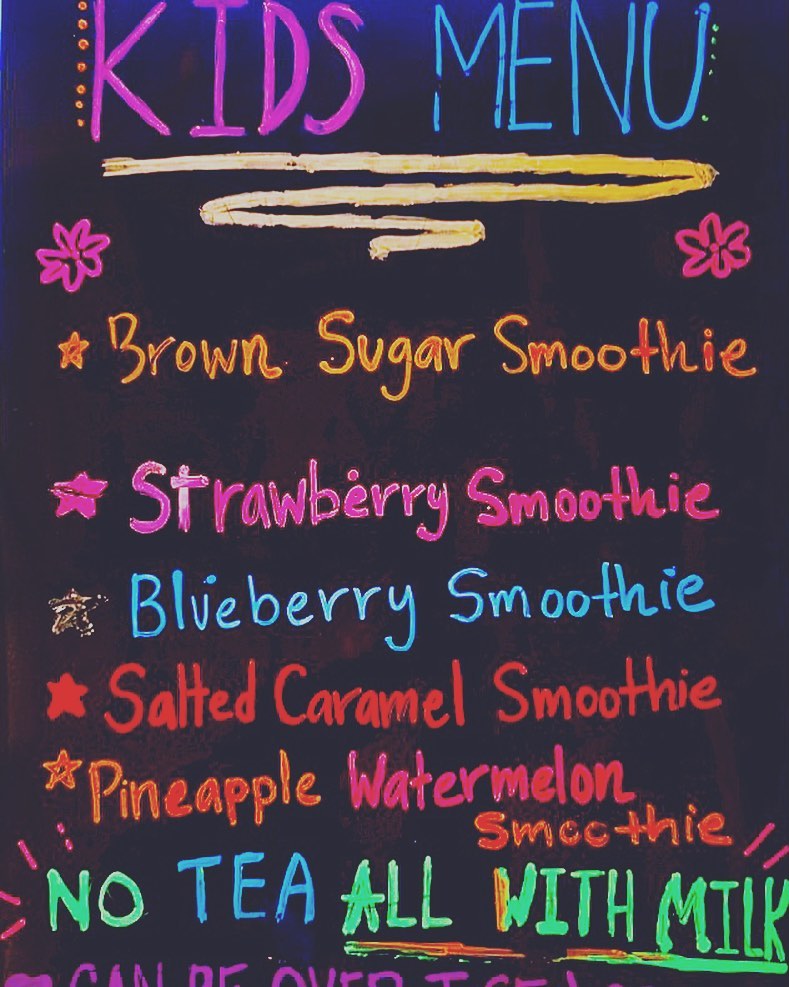 KIDS MENU
Brown Sugar Smoothie
Strawberry Smoothie
Blueberry Smoothie
Salted Caramel Smoothie
Pineapple Watermelon
Smoothie
NO TEA ALL WITH MILK
CAN BE OVER ICE